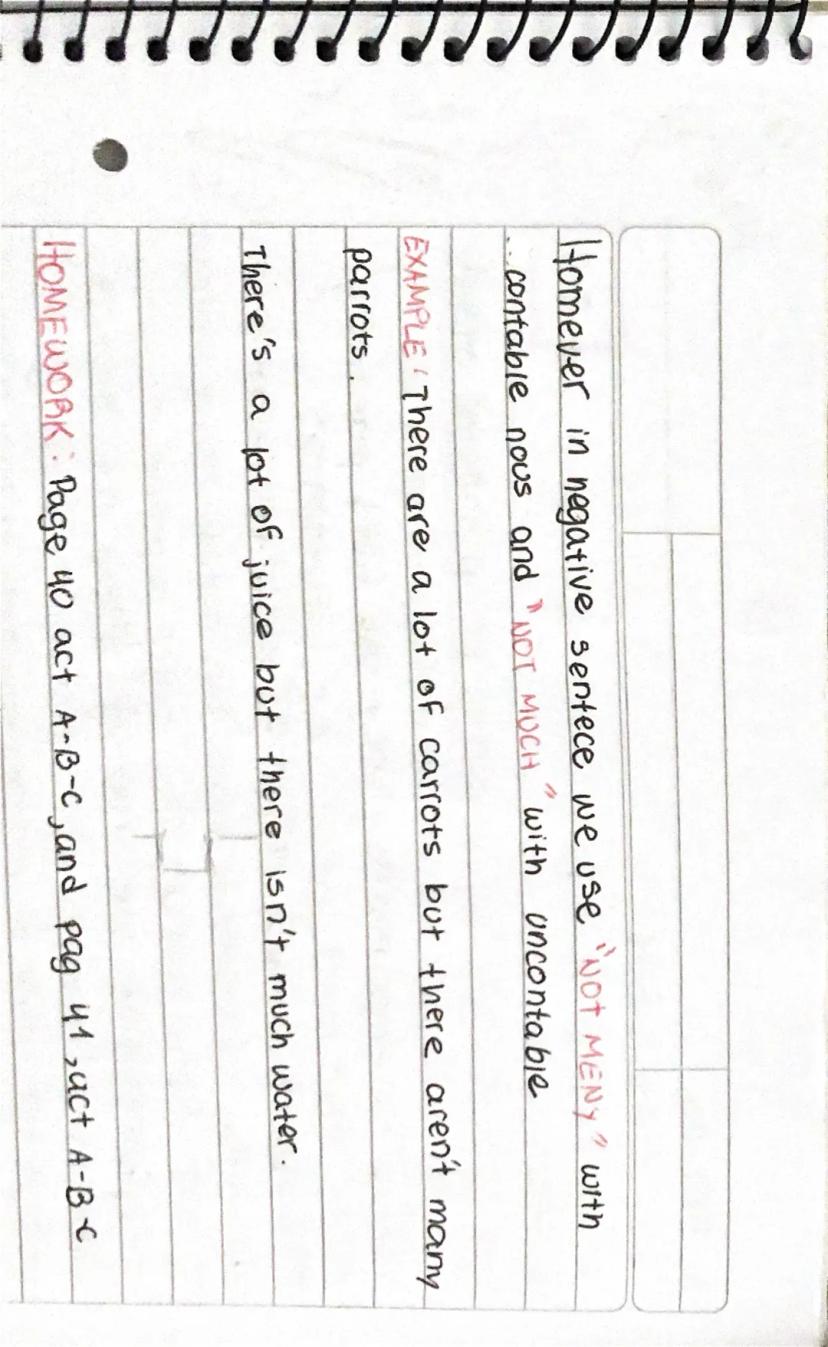 Homever in negative sentece we use "NOT MENY" with
contable nous and "NOT MUCH" with uncontable
EXAMPLE: There are a lot of carrots but there aren't many
parrots.
There's a lot of juice but there isn't much water.
HOMEWORK: Page 40 act A-B-C, and pag 41, act A-B-C